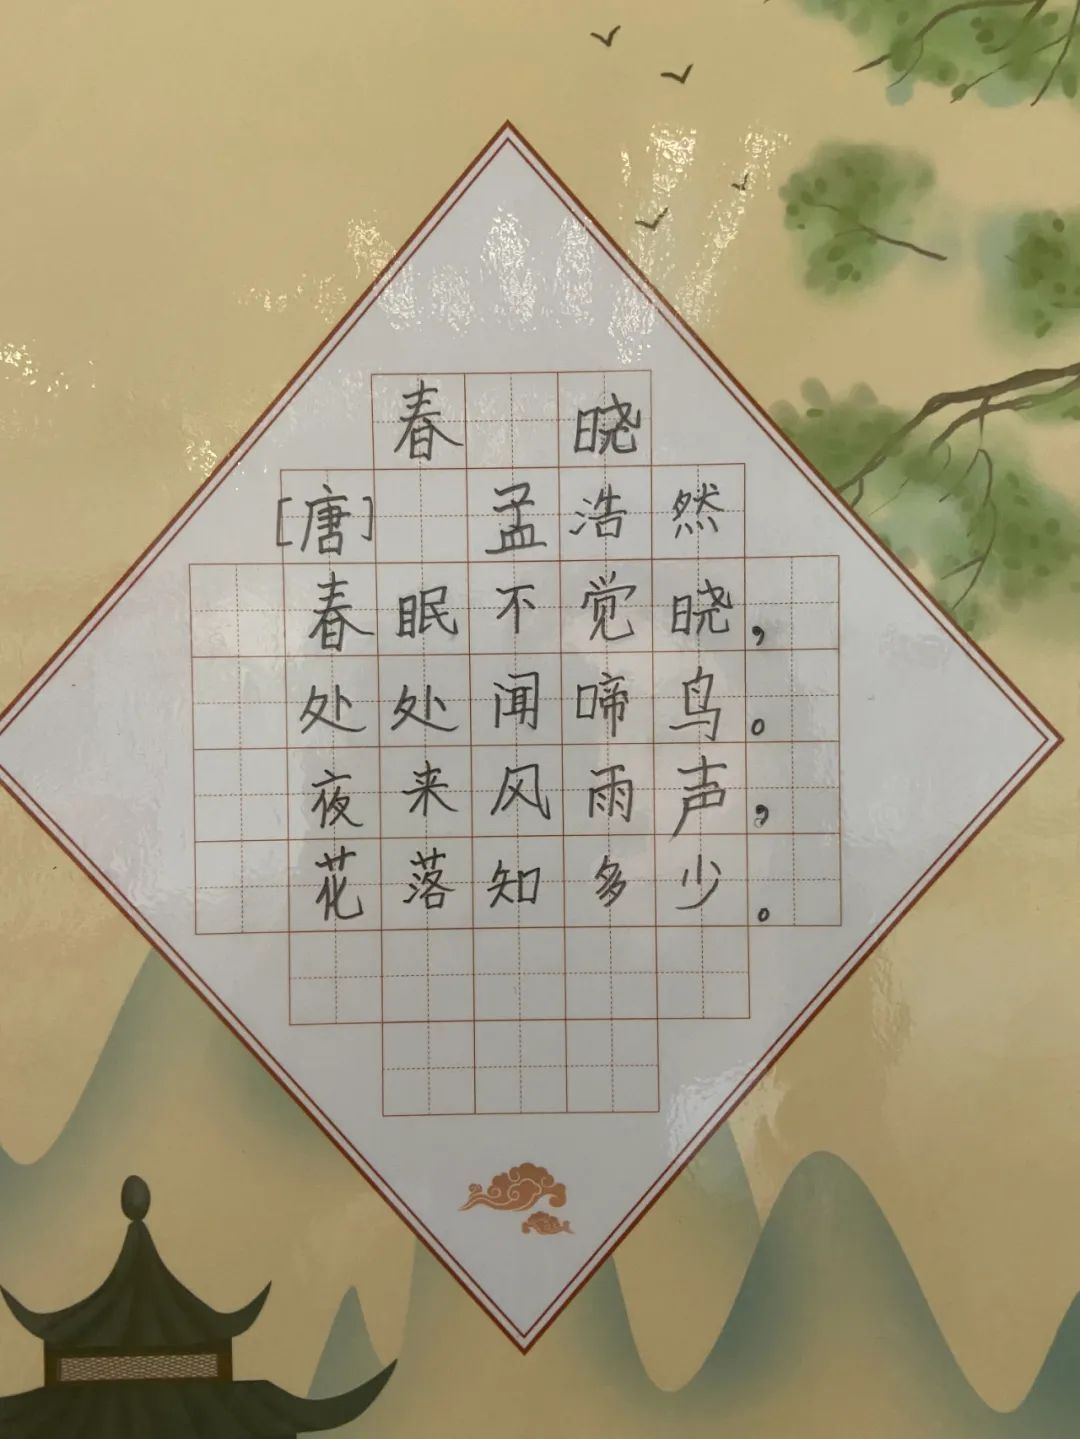 春 晓
[唐] 孟浩然
春眠不觉晓，
处处闻啼鸟。
夜来风雨声，
花落知多少。